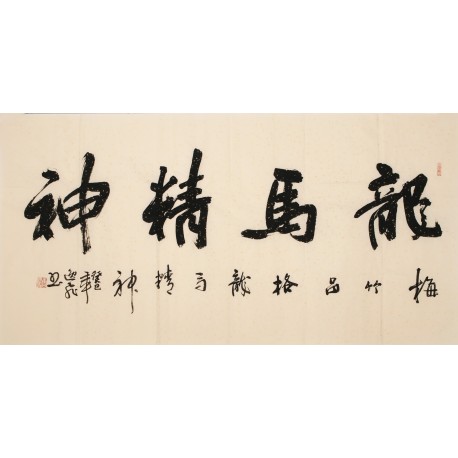 龍馬精神
梅竹品格龍馬精神